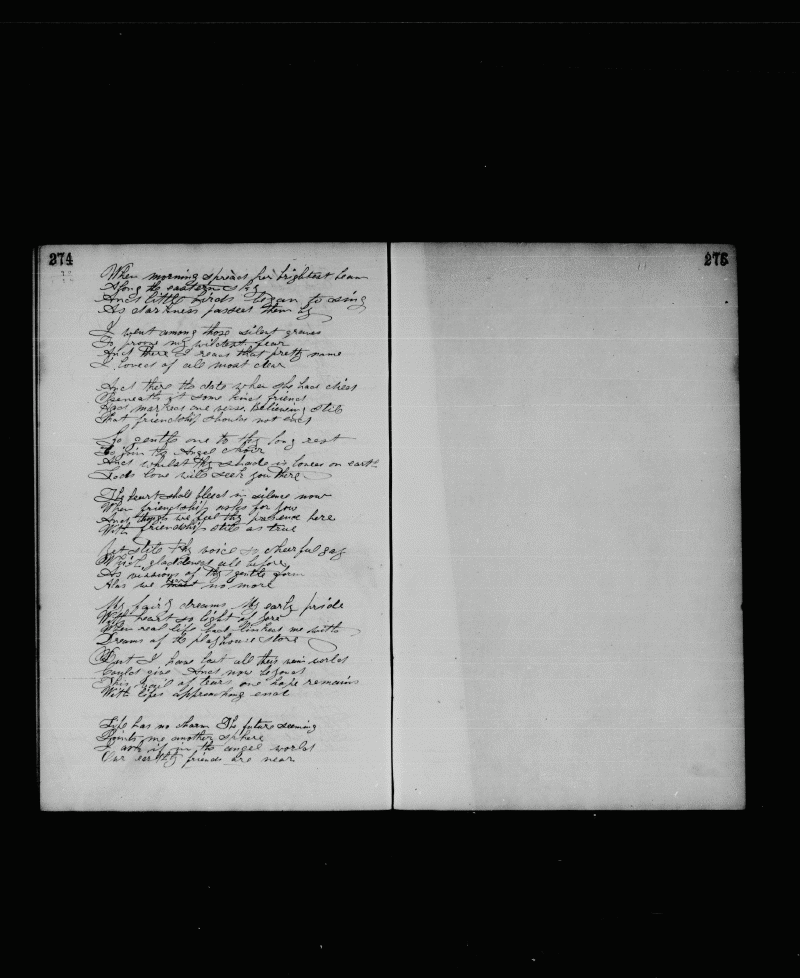 274
275
When morning spreads her brightest beam
Along the eastern sky
And little birds began to sing
As darkness passes them by
I went among those silent graves
To prove my wildest fear
And there I read that pretty name
I loved of all most dear
And there the date when she had died
Beneath it some kind friend
Had marked one verse. Believing still
That friendship should not end
Go gentle one to thy long rest
To join the Angel choir
And whilst thy shade is on earth
Gods love will seek you there
The heart shall bleed in silence now
When friendship asks for you
And though we feel thy presence here
With friendship still as true
But still thy voice so cheerful gay
Which gladdened all before
As visions of thy gentle form
Alas we no more
My fairy dreams My early pride
With heart so light of yore
When real life had linked me with
Dreams of the playhouse store
But I have lost all this vain world
Could give And now beyond
This vail of tears one hope remains
With lifes approaching end
Life has no charm The future seeming
Points me another sphere
I ask if in the angel world
Our earthly friends are near